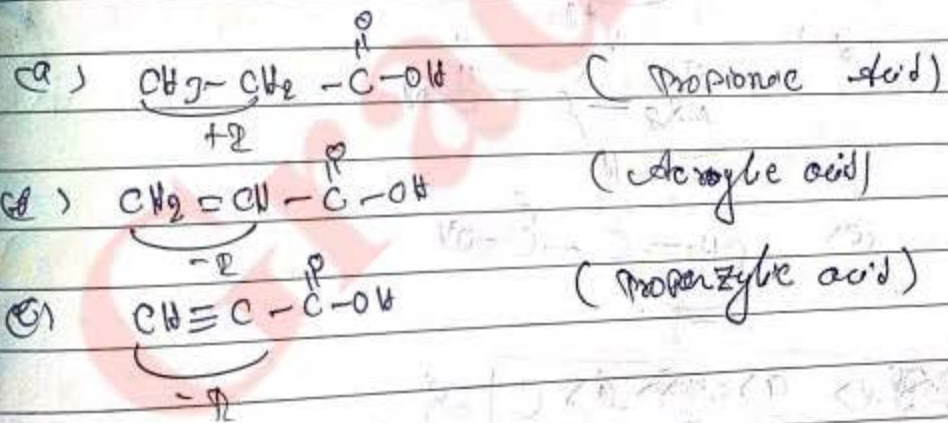 (a) CH3-CH2-C-OH (Propionic Acid)
O
+I
CH2=CH-C-OH (Acrylic acid)
O
-I
(c) CH≡C-C-OH (Properzylic acid)
O
-I